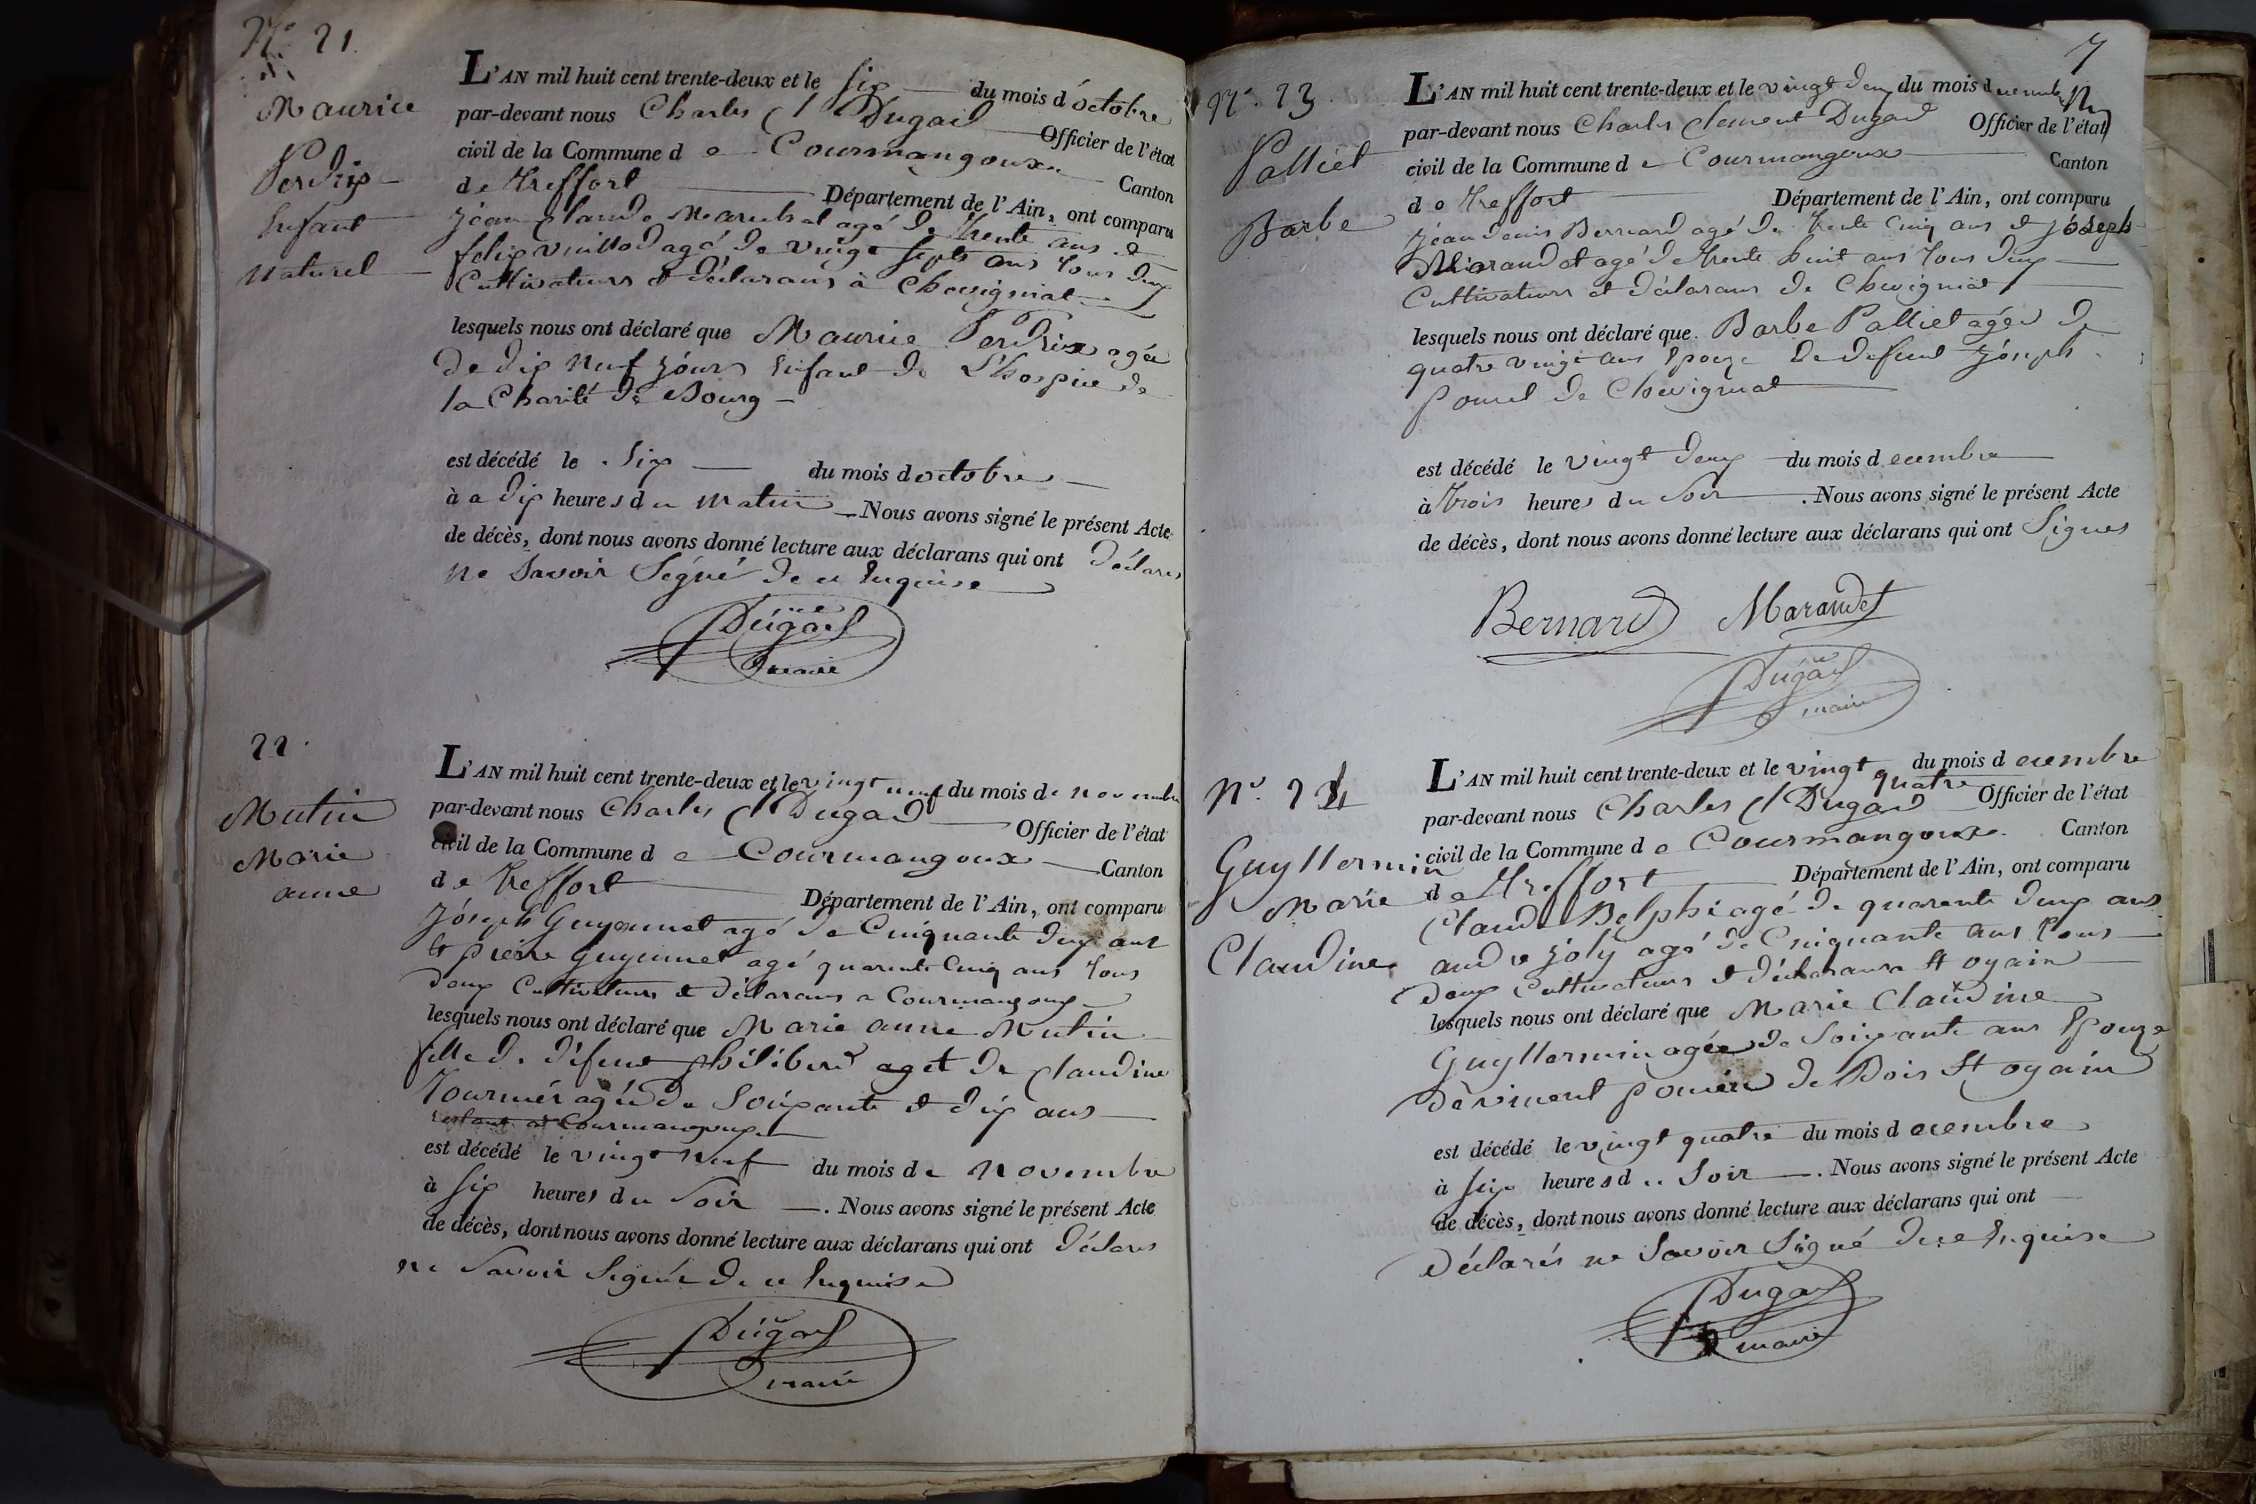 N.º 21.
Maurice
Perdrix
Enfant
naturel
L'AN mil huit cent trente-deux et le six du mois d'octobre
par-devant nous Charles Cl Dugad Officier de l'état
civil de la Commune d e Courmangoux Canton
de Treffort Département de l'Ain, ont comparu
jean Claude Marechal agé de trente ans et
felix vuillod agé de vingt sept ans tous deux
Cultivateurs et déclarans à Chevigniat
lesquels nous ont déclaré que Maurice Perdrix agée
de dix neuf jours Enfant de L'hospice de
la Charité de Bourg
est décédé le six du mois d octobre
à a dix heures d u matin Nous avons signé le présent Acte
de décès, dont nous avons donné lecture aux déclarans qui ont déclarés
ne Savoir Signé de ce Enquise
Dugad
maire
22.
Mutin
Marie
anne
L'AN mil huit cent trente-deux et le vingt neuf du mois de novembre
par-devant nous Charles Cl Dugad Officier de l'état
civil de la Commune d e Courmangoux Canton
d e Treffort Département de l'Ain, ont comparu
jóseph Guyennet agé de Cinquante deux ans
Et pierre guyennet agé quarente Cinq ans tous
deux Cultivateurs et déclarans a Courmangoux
lesquels nous ont déclaré que Marie anne Mutin
fille de défunt philiberd aget de Claudine
tournier agée de Soixante et dix ans
restant a Courmangoux
est décédé le vingt neuf du mois d e novembre
à six heures d u soir . Nous avons signé le présent Acte
de décès, dont nous avons donné lecture aux déclarans qui ont déclarés
ne Savoir Signér de ce Enquise
Dugad
maire
7
N.º 23.
Palliet
Barbe
L'AN mil huit cent trente-deux et le vingt deux du mois d ecembre
par-devant nous Charles Clement Dugad Officier de l'état
civil de la Commune d e Courmangoux Canton
d e Treffort Département de l'Ain, ont comparu
jéan denis Bernard agé de trente Cinq ans et jóseph
Marandet agé de trente huit ans tous deux
Cultivateurs et déclarans de Chevigniat
lesquels nous ont déclaré que Barbe Palliet agée de
quatre vingt ans Epouze de defunt jóseph
poncet de Chevigniat
est décédé le vingt deux du mois d ecembre
à trois heures du soir . Nous avons signé le présent Acte
de décès, dont nous avons donné lecture aux déclarans qui ont Signés
Bernard Marandet
Dugad
maire
N.º 24
Guyllermin
Marie
Claudine
L'AN mil huit cent trente-deux et le vingt quatre du mois d ecembre
par-devant nous Charles Cl Dugad Officier de l'état
civil de la Commune d e Courmangoux Canton
d e Treffort Département de l'Ain, ont comparu
Claude Belphi agé de quarente deux ans
andre jóly agé de Cinquante ans tous
deux Cultivateurs et déclarans a St oyain
lesquels nous ont déclaré que Marie Claudine
Guyllermin agée de Soixante ans Epouze
de vincent poncin de Bois St oyain
est décédé le vingt quatre du mois d ecembre
à six heures d u Soir . Nous avons signé le présent Acte
de décès, dont nous avons donné lecture aux déclarans qui ont
déclarés ne Savoir Signé de ce Enquise
Dugad
maire